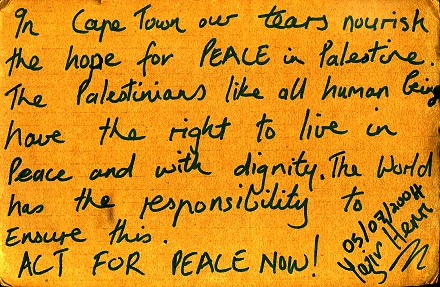 In Cape Town our tears nourish
the hope for PEACE in Palestine.
The Palestinians like all human being
have the right to live in
Peace and with dignity. The World
has the responsibility to
Ensure this.
ACT FOR PEACE NOW!
03/03/2004
Henri